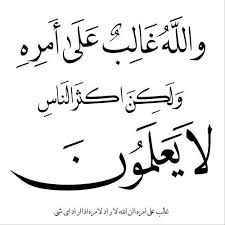 وَاللَّهُ غَالِبٌ عَلَىٰ أَمْرِهِ
وَلَكِنَ اكثَرَ النَاسِ
لَا يَعْلَمُونَ
غالب على امره ان الله لا راد لامره اذا اراد اى شى